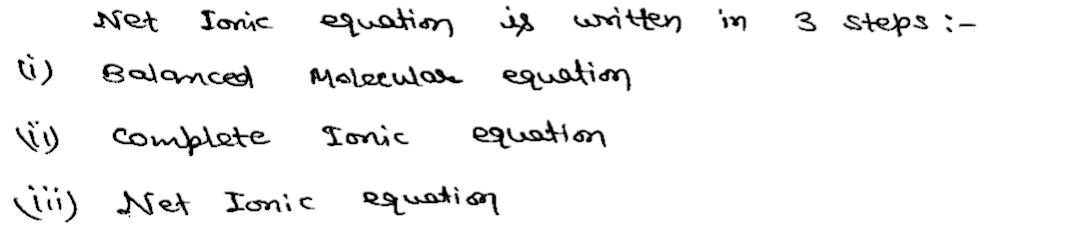 Net Ionic equation is written in 3 steps :-
(i) Balanced Molecular equation
(ii) Complete Ionic equation
(iii) Net Ionic equation